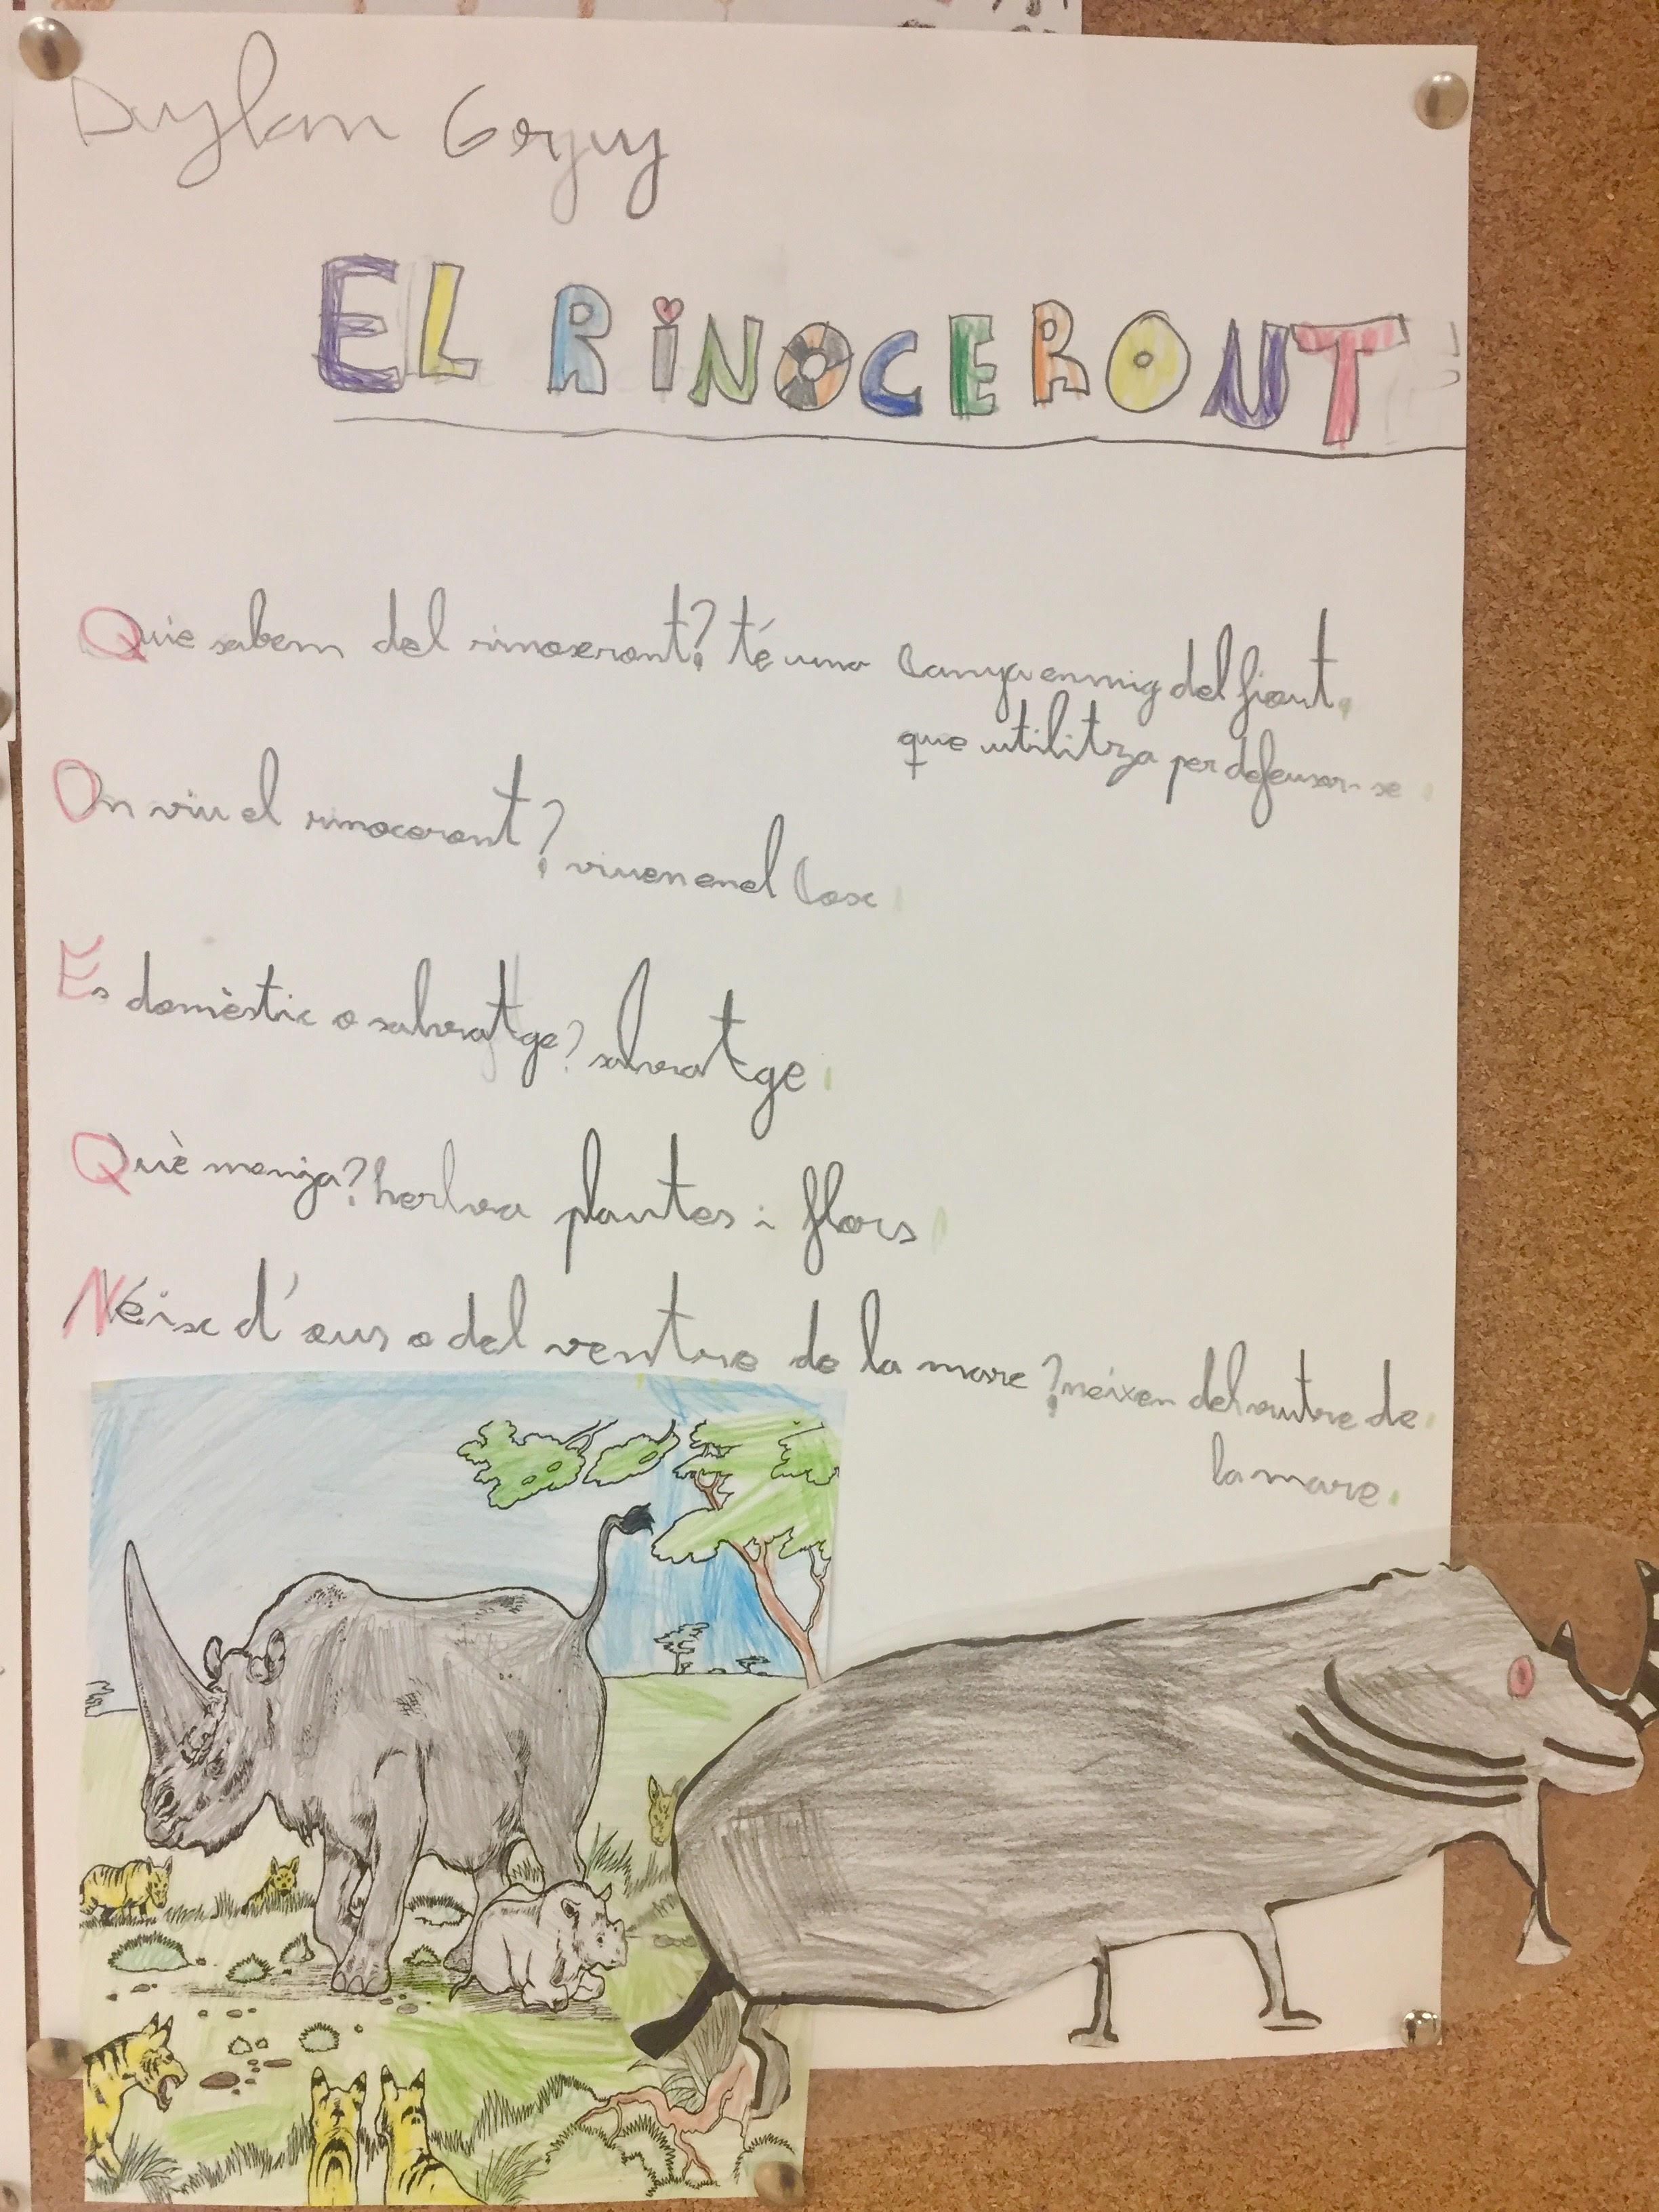 Dylan
EL RiNOCERONT
Que sabem del rinoxeront? té una banya enmig del front.
que utilitza per defensar-se.
On viu el rinoceront? viuen en el bosc.
Es domèstic o salvatge? salvatge.
Què menja? herba plantes i flors.
Néixe d'ous o del ventre de la mare? neixen del ventre de
la mare.